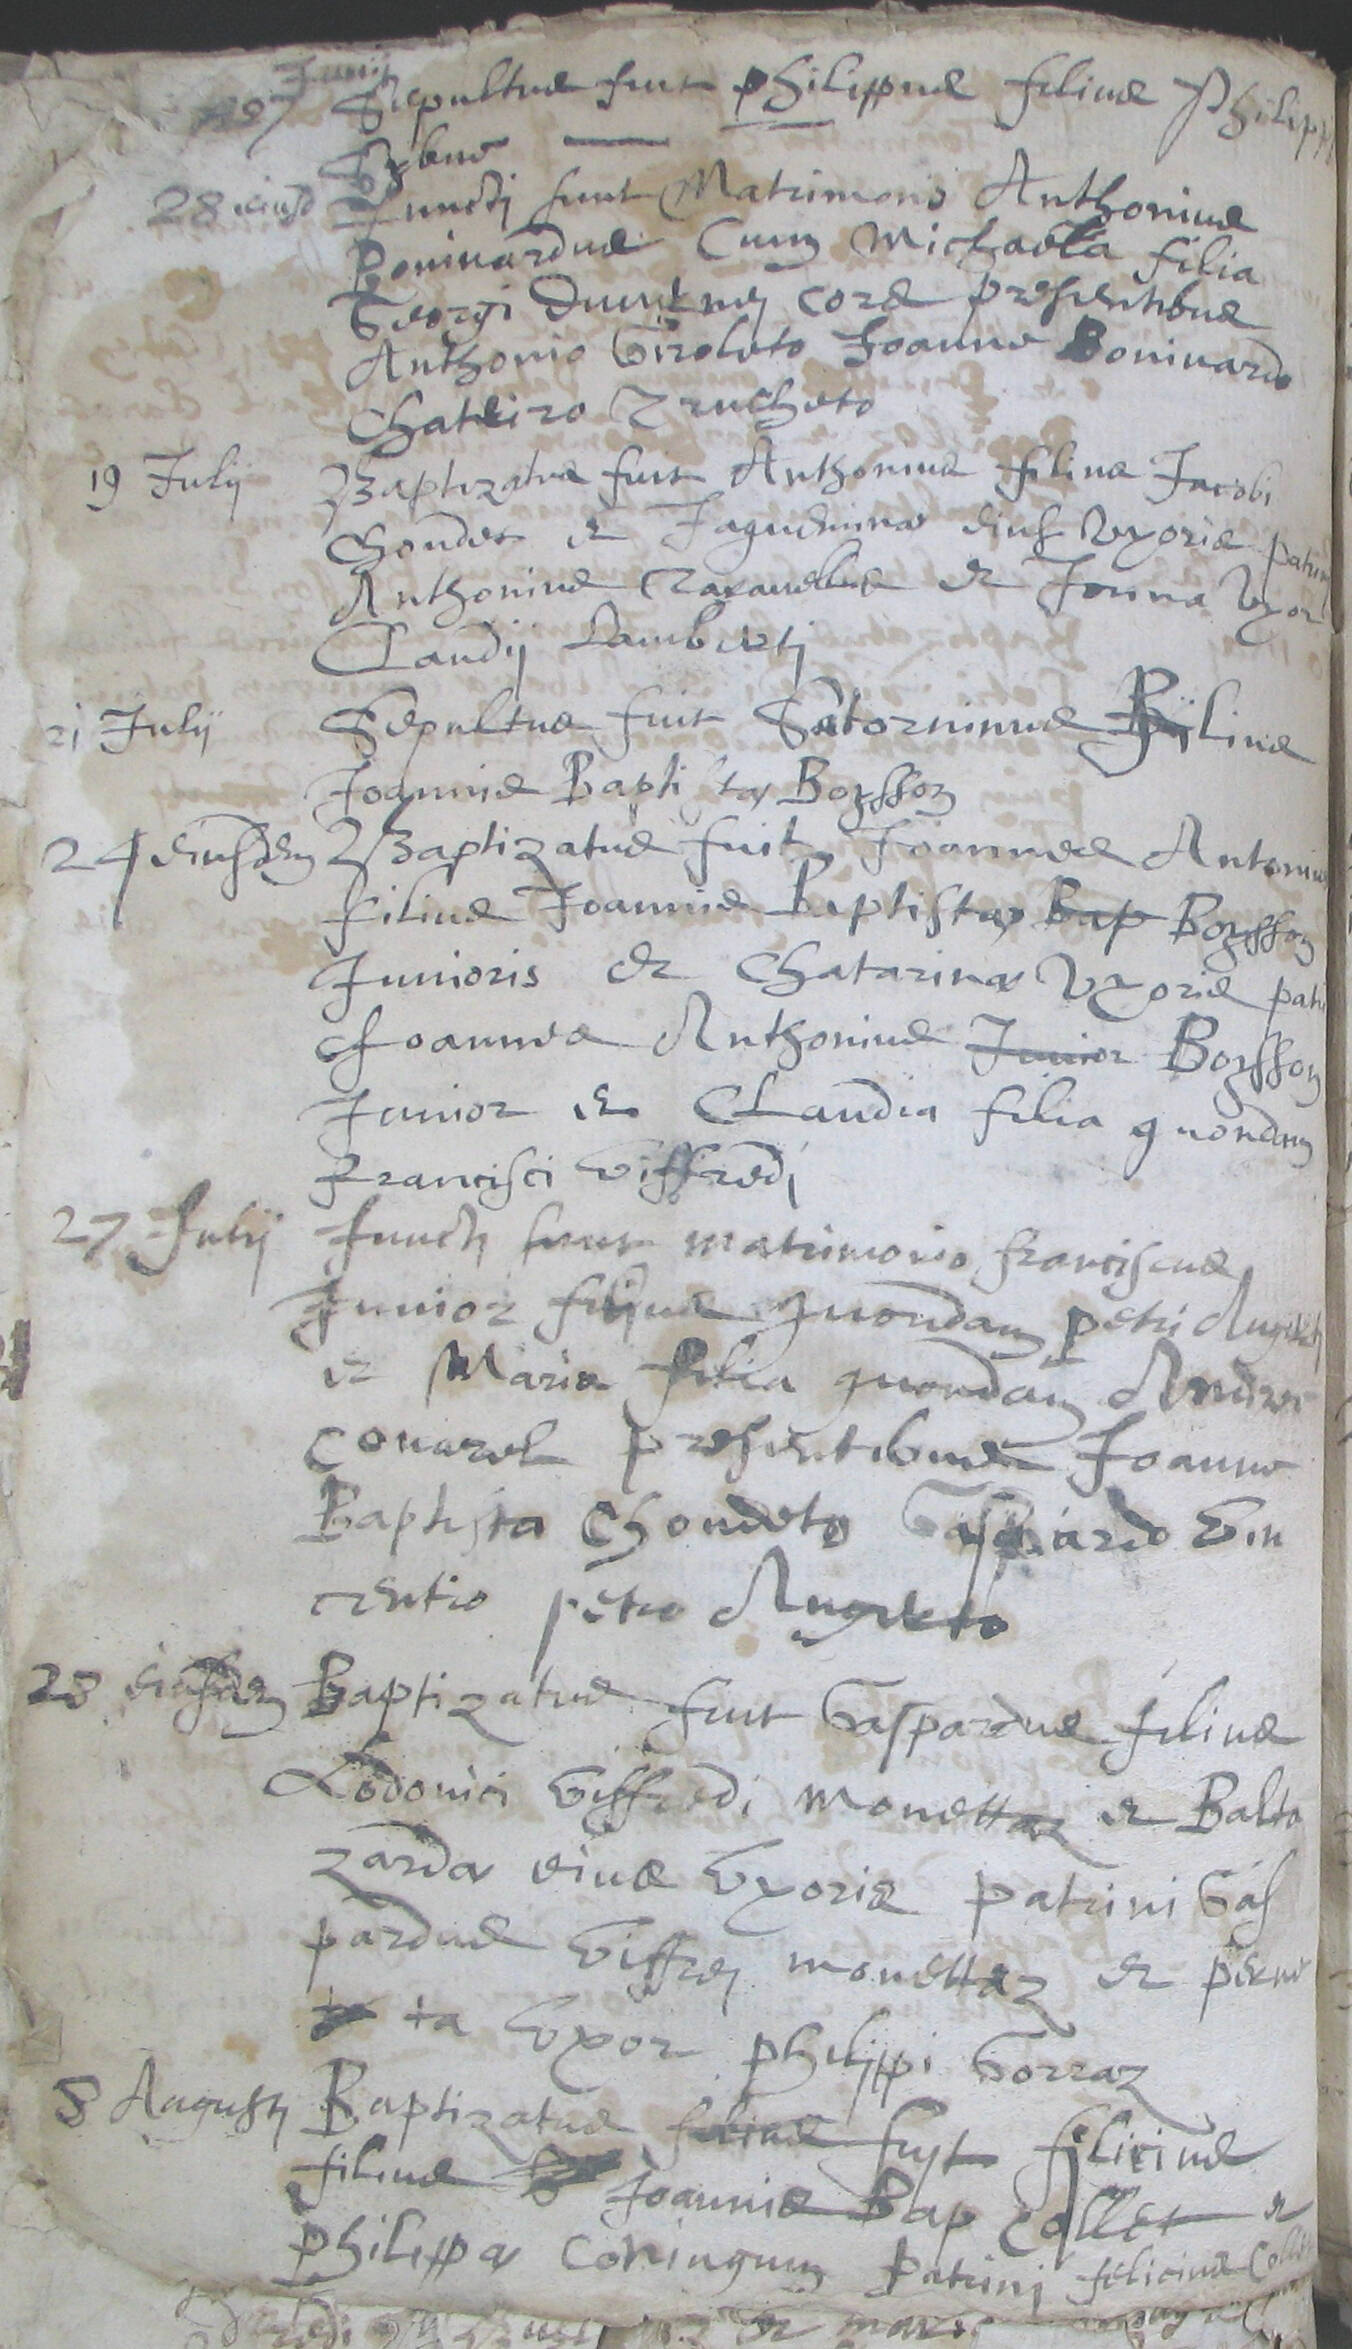 Junij
Sepultus fuit philippus filius Philippi
28 eiusd Juncti sunt Matrimonio Anthonius
Boniuardus Cum Michaela filia
Georgi cora presentibus
Anthonio Giroleto Joanne Boniuardo
Trucheto
19 Julij Baptizatus fuit Anthonius filius Jacobi
Chondet et Jaquemina eius Uxoris patrini
Anthonius et Uxor
Claudij Lamberti
21 Julij Sepultus fuit Satorninus filius
Joannis Baptista Boysson
24 eiusdem Baptizatus fuit Joannes Antonius
filius Joannis Baptista Bap Boysson
Junioris et Chatarina Uxoris patri
Joannes Anthonius Junior Boysson
Junior et Claudia filia quondam
Francisci Giffredi
27 Julij Juncti sunt matrimonio franciscus
Junior filius quondam petri
et Maria filia quondam Andrei
presentibus Joanne
Baptista Chondeto Gaspardo Vin
centio petro
28 eiusdem Baptizatus fuit Gaspardus filius
Lodouici Giffredi monettaz et Balta
zarda eius Uxoris patrini Gas
pardus Giffrey monettaz et perne
ta Uxor philippi Gorraz
8 Augusti Baptizatus filius fuyt felicius
filius Joannis Bap Collet et
philippa coniugum patrini felicius